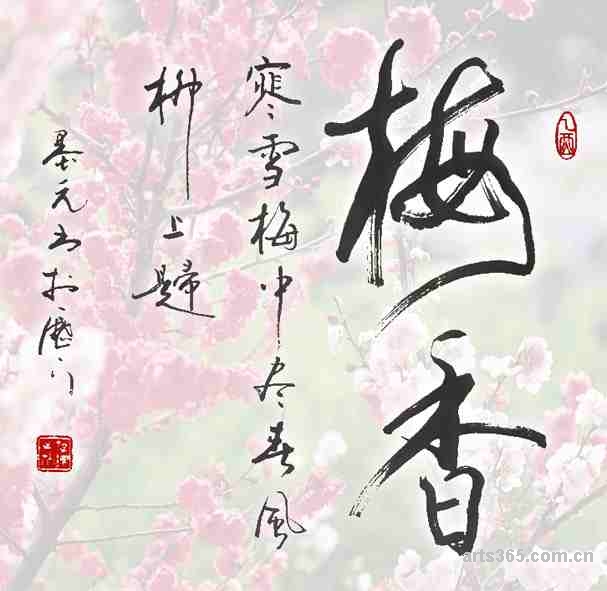 梅香
寒雪梅中尽春風
柳上歸
墨元书於厦门
arts365.com.cn